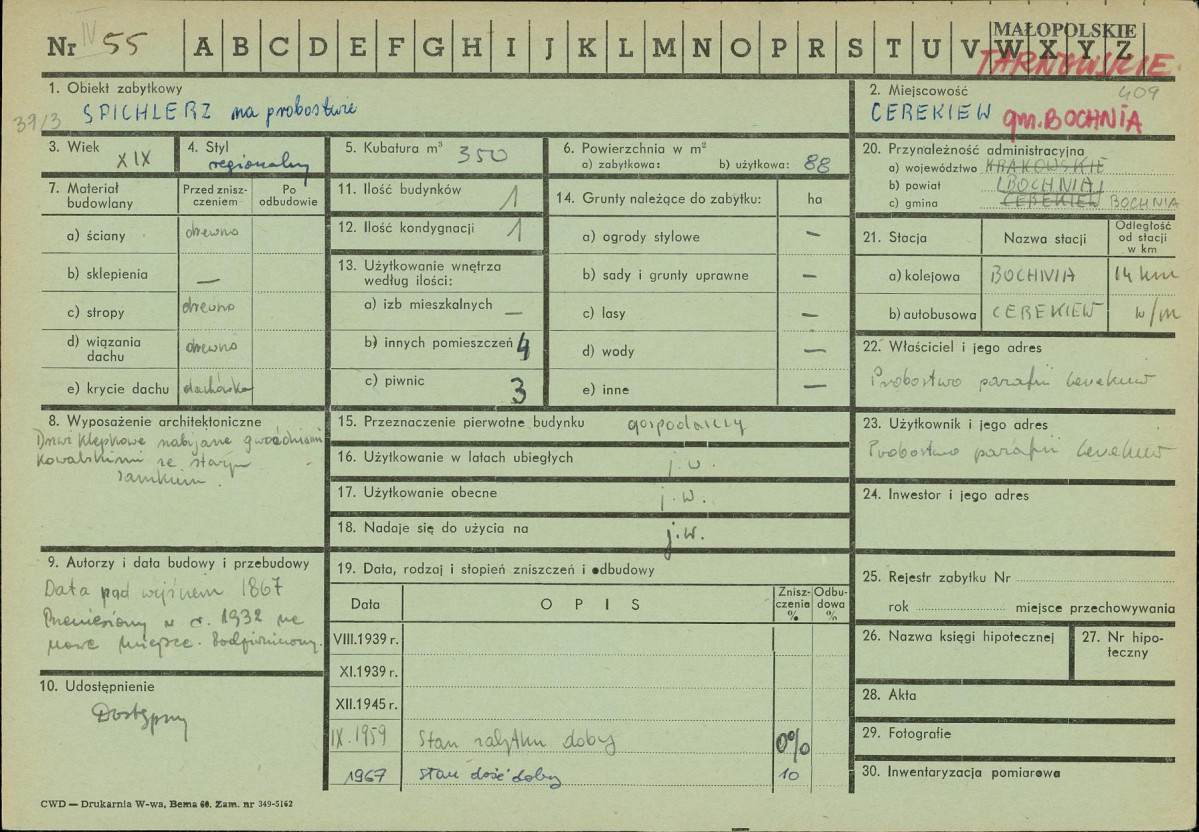 Nr IV 55
A B C D E F G H I J K L M N O P R S T U V W X Y Z
MAŁOPOLSKIE
TARNOWSKIE
1. Obiekt zabytkowy
SPICHLERZ na probostwie
39/3
2. Miejscowość
409
CEREKIEW gm. BOCHNIA
3. Wiek
XIX
4. Styl
regionalny
5. Kubatura m³ 350
6. Powierzchnia w m²
a) zabytkowa: b) użytkowa: 88
7. Materiał budowlany
Przed znisz-
czeniem
Po
odbudowie
a) ściany drewno
b) sklepienia —
c) stropy drewno
d) wiązania
dachu drewno
e) krycie dachu dachówka
8. Wyposażenie architektoniczne
Drzwi klepkowe nabijane gwoździami
kowalskimi ze starym
zamkiem.
9. Autorzy i data budowy i przebudowy
Data nad wejściem 1867
Przeniesiony w r. 1932 na
nowe miejsce. Podpiwniczony.
10. Udostępnienie
Dostępny
11. Ilość budynków 1
12. Ilość kondygnacji 1
13. Użytkowanie wnętrza
według ilości:
a) izb mieszkalnych —
b) innych pomieszczeń 4
c) piwnic 3
14. Grunty należące do zabytku: ha
a) ogrody stylowe —
b) sady i grunty uprawne —
c) lasy —
d) wody —
e) inne —
15. Przeznaczenie pierwotne budynku gospodarczy
16. Użytkowanie w latach ubiegłych j.w.
17. Użytkowanie obecne j.w.
18. Nadaje się do użycia na j.w.
19. Data, rodzaj i stopień zniszczenia i odbudowy
Data
OPIS
Znisz-
czenia
%
Odbu-
dowa
%
VIII.1939 r.
XI.1939 r.
XII.1945 r.
IX.1959 Stan zabytku dobry 0%
1967 stan dość dobry 10
20. Przynależność administracyjna
a) województwo KRAKOWSKIE
b) powiat BOCHNIA
c) gmina CEREKIEW BOCHNIA
21. Stacja
Nazwa stacji
Odległość
od stacji
w km
a) kolejowa BOCHNIA 14 km
b) autobusowa CEREKIEW w/m
22. Właściciel i jego adres
Probostwo parafii Cerekiew
23. Użytkownik i jego adres
Probostwo parafii Cerekiew
24. Inwestor i jego adres
25. Rejestr zabytku Nr
rok miejsce przechowywania
26. Nazwa księgi hipotecznej
27. Nr hipo-
teczny
28. Akta
29. Fotografie
30. Inwentaryzacja pomiarowa
CWD — Drukarnia W-wa, Bema 60. Zam. nr 349-5162